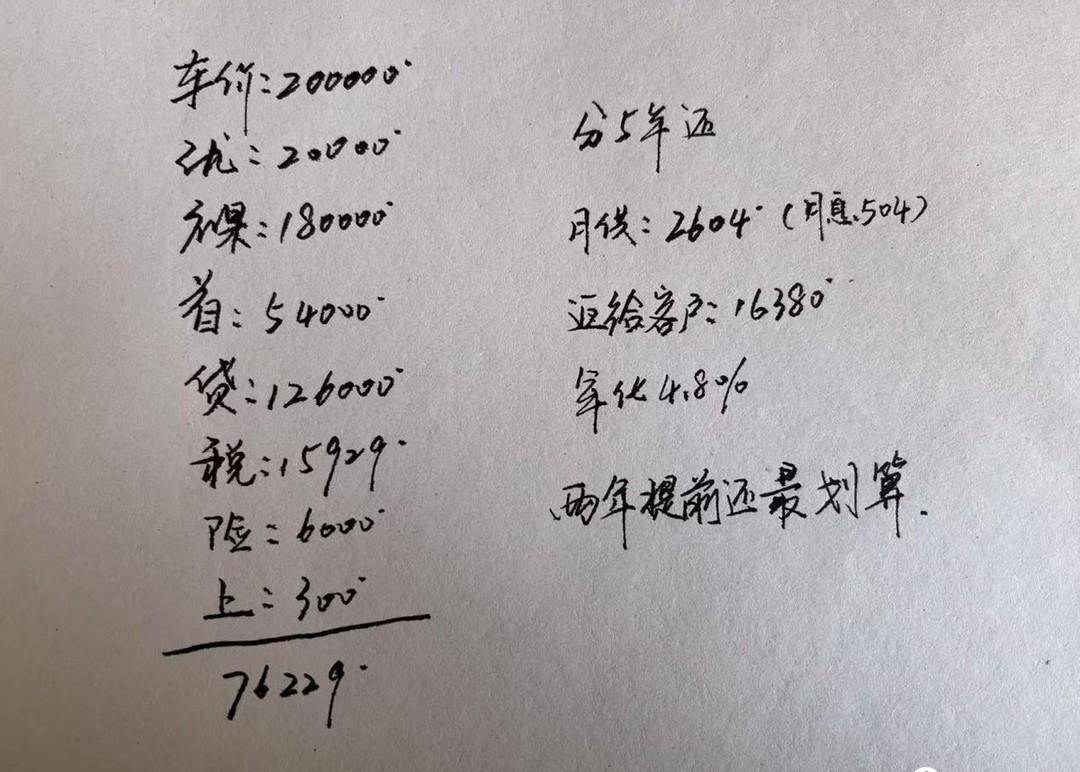 车价:200000
优:20000
裸:180000
首:54000
贷:126000
税:15929
险:6000
上:300
76229
分5年还
月供:2604(月息504)
返给客户:16380
年化4.8%
两年提前还最划算.